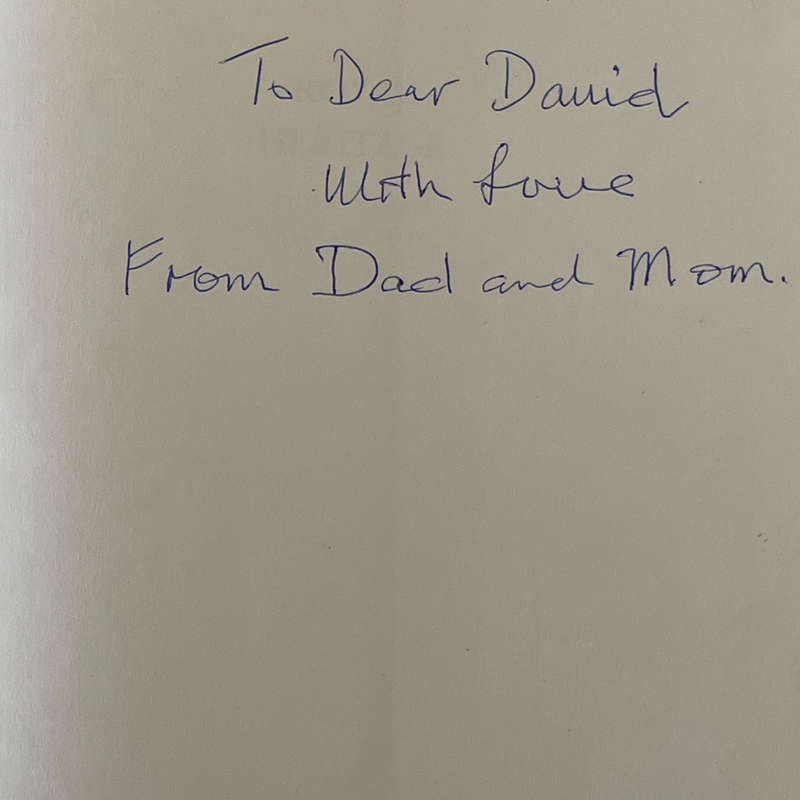 To Dear David
With Love
From Dad and Mom.